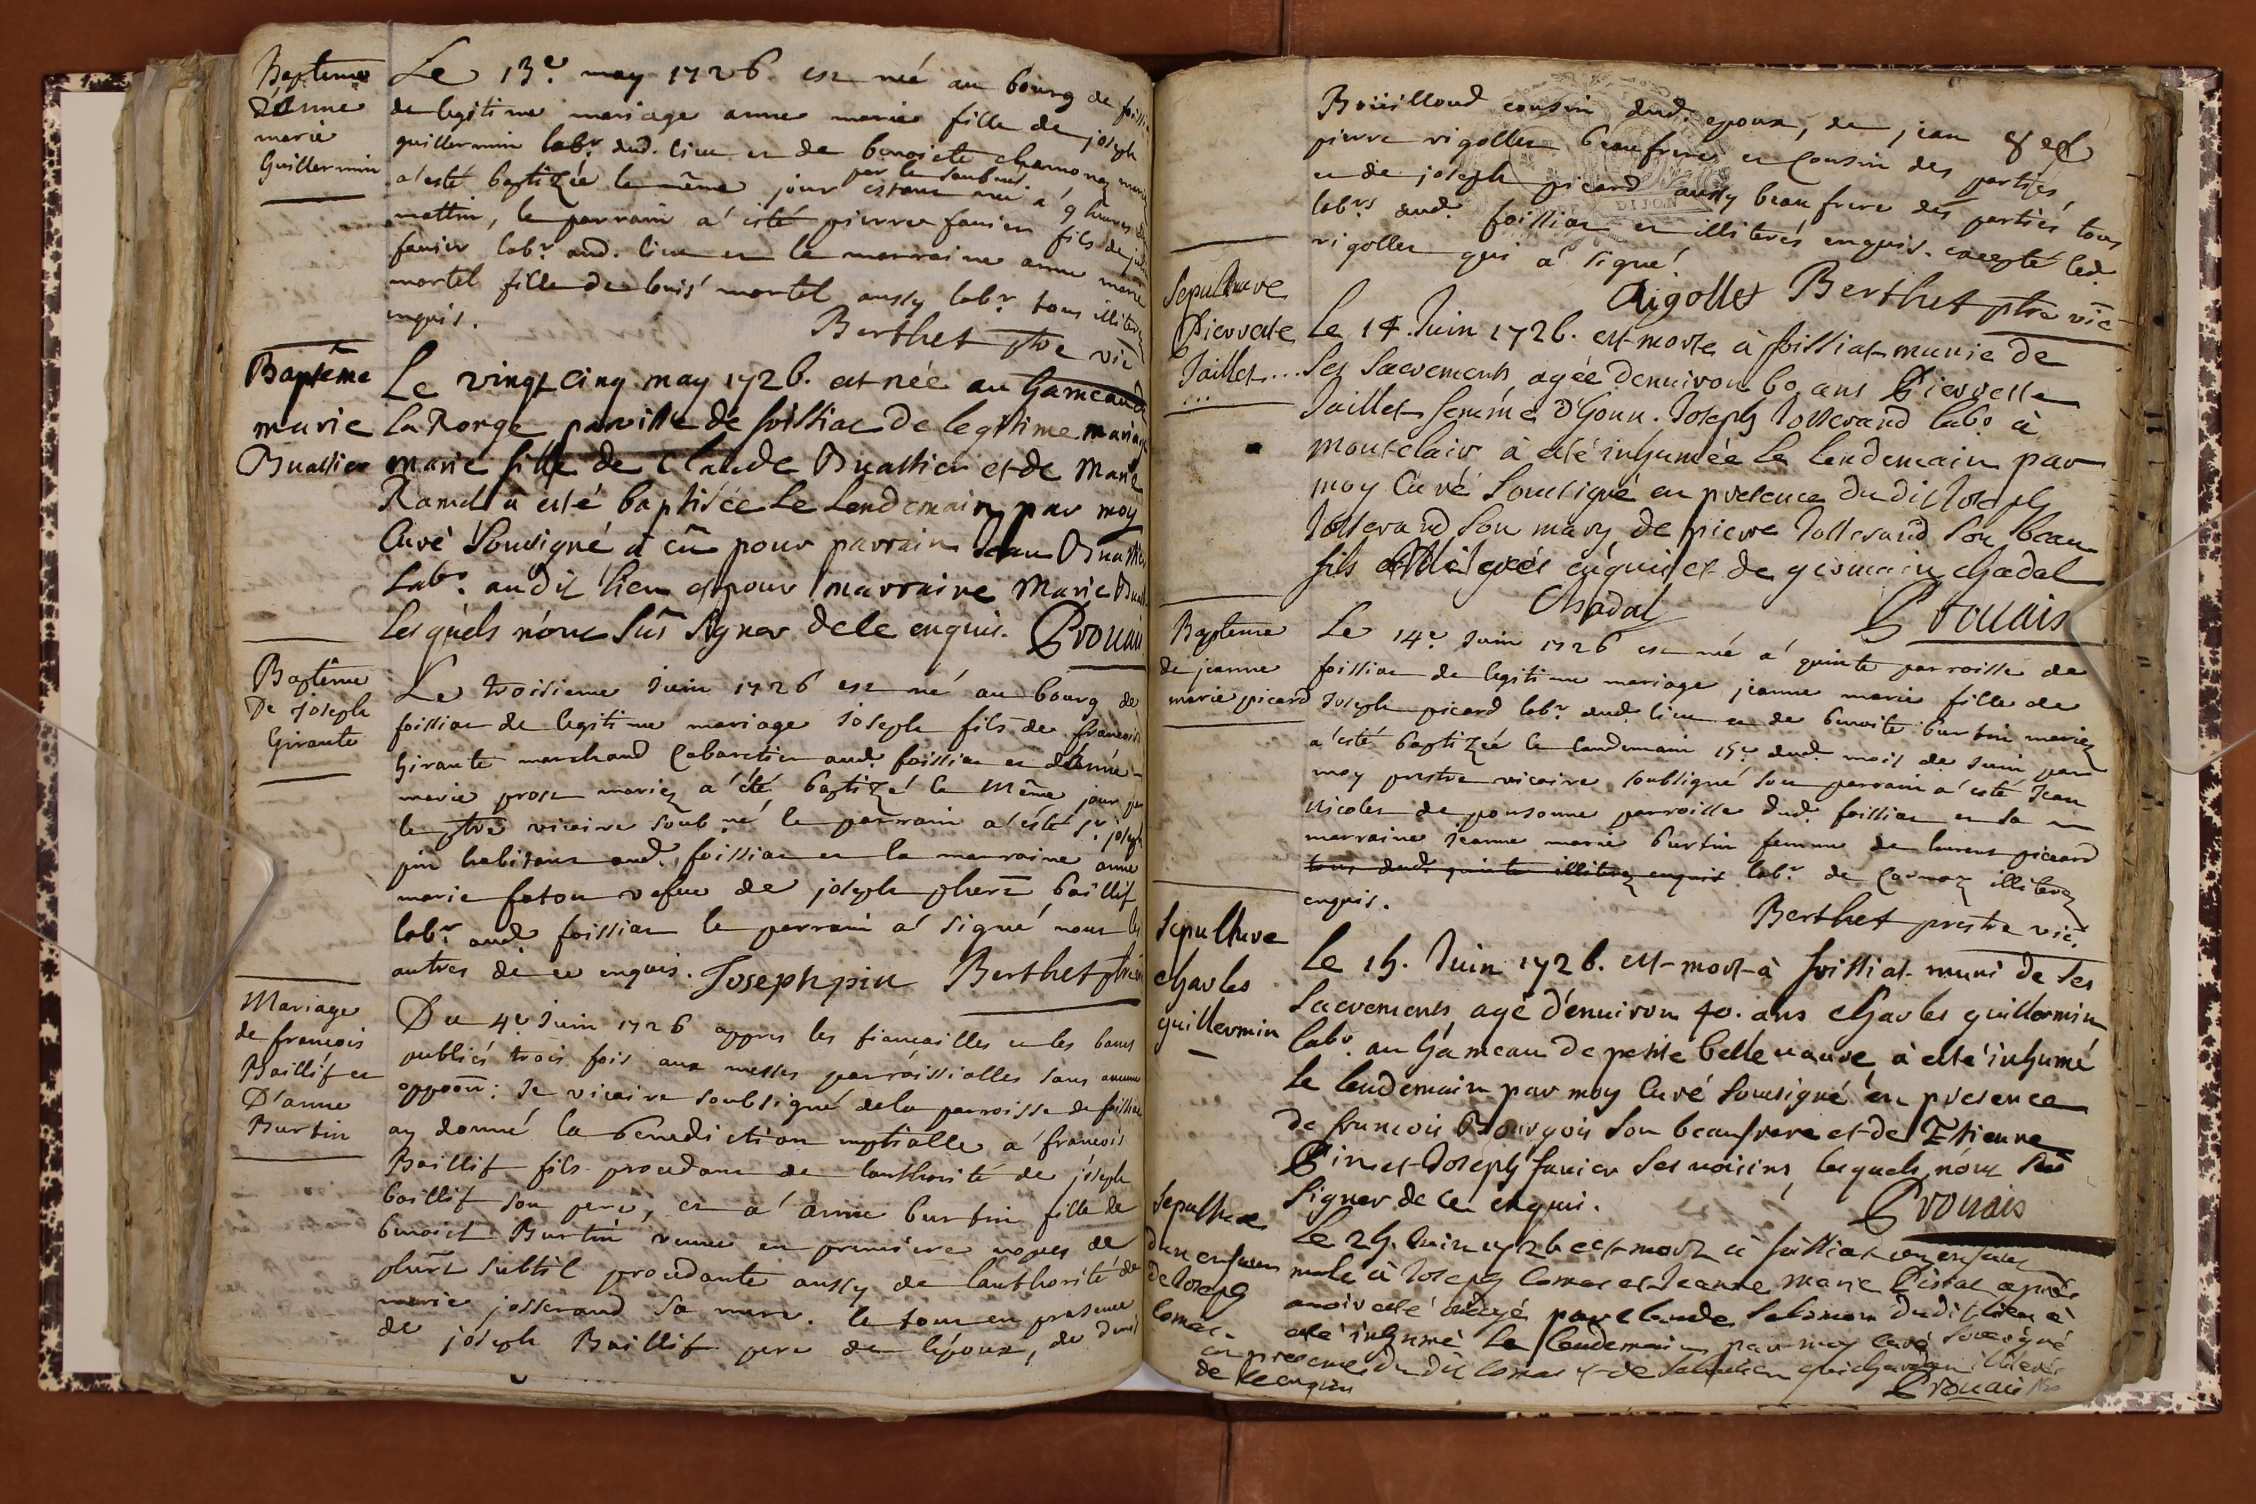 Baptême
d'Anne
marie
Guillermin
Le 13e. may 1726 est né au bourg de foissia
de legitime mariage anne marie fille de joseph
guillermin labr. dud. lieu et de benoiete charnonay mariez
par le soubsné
a'esté baptizée le même jour estant née a' 9 heures du
mattin, le parrain a' esté pierre fanier fils de
fanier labr. aud. lieu et la marraine anne marie
mortel fille de louis' mortel aussy labr. tous illiterez
enquis.
Berthet ptre vic
Baptême
marie
Buathier
Le vingt cinq may 1726. est née au hameau de
la Ronge paroisse de foissiac de legitime mariage
marie fille de Claude Buathier et de Marie
Ramel a esté baptisée Le Lendemain par moy
Curé Sousigné a eû pour parrain Jean Buathier
Labr. audit lieu et pour marraine Marie
Lesquels n'ont sû signer dece enquis. Provais
Baptême
De joseph
Girante
Le troisieme Juin 1726 est né au bourg de
foissiac de legitime mariage joseph fils de francois
Girante marchand Cabaretier aud. foissiac et d'Anne
marie prost mariez a' été baptizé le même jour par
le ptre vicaire soubné le parrain a'esté sr. joseph
pin habitant aud. foissiac et la marraine anne
marie faton vefue de joseph baillif
labr. aud. foissiac le parrain a' signé non les
autres de ce enquis. Joseph pin Berthet ptre
Mariage
de francois
Baillif et
D'anne
Burtin
Du 4e Juin 1726 appres les fiancailles et les bancs
publiés trois fois aux messes parroissialles sans aucune
oppoon: Je vicaire soubsigné de la parroisse de foissiac
ay donné la benediction nuptialle a' francois
Baillif fils proudant de lauthorité de joseph
baillif son pere, et a' anne burtin fille de
benoiet Burtin veuue en premiere nopces de
phiirt subtil proudante aussy de lauthorité de
marie josserand sa mere. le tout en presence
de joseph Baillif pere de lépoux, de denis
Boüilloud cousin dud. epoux, de jean
pierre rigollet beaufrere et cousin des parties,
et de joseph picard aussy beau frere des parties tous
labrs. aud. foissiac et illiterés enquis. excepté led.
rigollet qui a' signé.
Rigollet Berthet ptre vic
Sepulture
Pierrette
Jaillet...
Le 14. Juin 1726. est morte à foissiat munie de
Ses Sacrements agée denuiron 60 ans Pierrette
Jaillet femme d'honn. Joseph Josserand labr. à
montclair à esté inhumée Le Lendemain par
moy Curé Sousigné en presence dudit Joseph
Josserand Son mary, de pierre Josserand Son beau
fils enquis et de germain chadal
Chadal Provais
Baptême
de jeanne
marie picard
Le 14e Juin 1726 est né a' quinte parroisse de
foissiac de legitime mariage jeanne marie fille de
Joseph picard labr. dud. lieu et de benoite burtin mariez
a'esté baptizée le landemain 15e. dud. mois de juin par
moy prestre vicaire soubsigné son parrain a' esté jean
nicolet de ponsonne parroisse dud. foissiac et sa
marraine Jeanne marie burtin femme de laurent piccard
tous dud. quinte illiterez enquis labr. de Carnoz illiterez
enquis.
Berthet prestre vic.
Sepulture
charles
guillermin
Le 15. Juin 1726. est mort à foissiat muni de Ses
Sacrements agé d'enuiron 40. ans charles guillermin
labr. au hameau de petite bellevauve, à esté inhumé
Le lendemain par moy Curé sousigné en presence
de francois Bourgois son beaufrere et de Etienne
Pin et Joseph fanier Ses voisins, lesquels n'ont sû
signer de ce enquis.
Provais
Sepulture
dun enfant
de Joseph
Comas
Le 25. Juin 1726 est mort à foissiat un enfant
male à Joseph Comas et Jeanne Marie après
avoir esté ondoyé par claude Salomon dudit lieu à
esté inhumé Le Lendemain par moy Curé Sousigné
en presence du dit Comas et de
de ce enquis
Provais